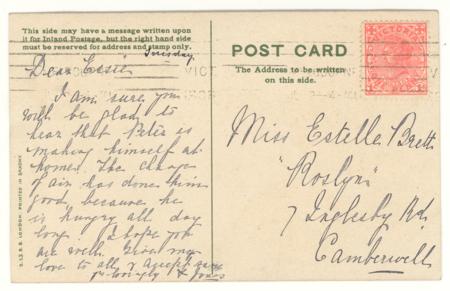 This side may have a message written upon
it for Inland Postage, but the right hand side
must be reserved for address and stamp only.
Tuesday
Dear Essie
I am sure you
will be glad to
hear that Peter is
making himself at
home. The change
of air has done him
good, because he
is hungry all day
long. I hope you
are well. Give my
love to all & accept same
POST CARD
The Address to be written
on this side.
VICTORIA
VIC
Miss Estelle Brett
"Roslyn"
7 Inglesby Rd.
Camberwell
PRINTED IN SAXONY
LONDON